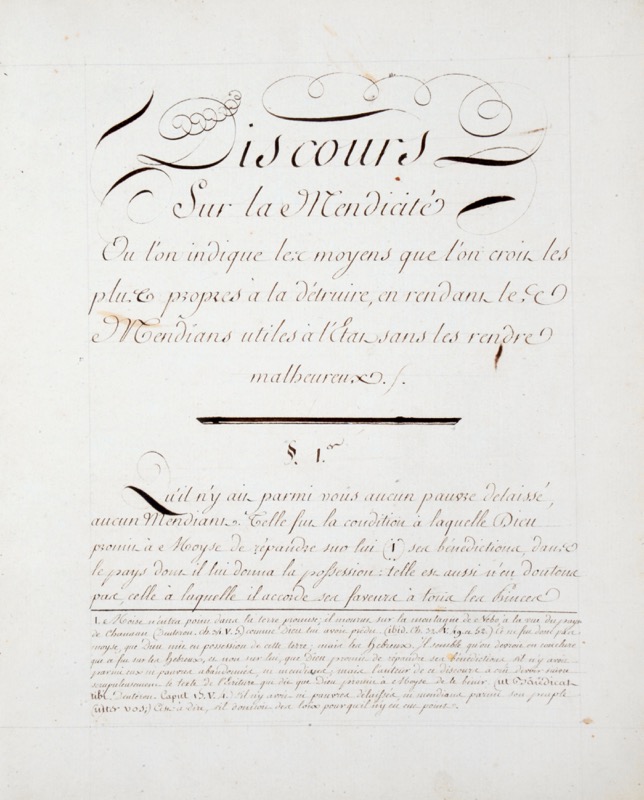 Discours
Sur la Mendicité
Ou l'on indique les moyens que l'on croit les
plus propres à la détruire, en rendant les
Mendians utiles à l'État sans les rendre
malheureux.
§. 1.er
Qu'il n'y ait parmi vous aucun pauvre delaissé,
aucun Mendiant. Telle fut la condition à laquelle Dieu
promit à Moyse de répandre sur lui (1) ses bénédictions, dans
le pays dont il lui donna la possession: telle est aussi n'en doutons
pas, celle à laquelle il accorde ses faveurs à tous les Princes
1. Moise n'entra point dans la terre promise; il mourut sur la montagne de Nebo, à la vue du pays
de Chanaan (Deuteron. Ch. 34. V. 5) comme Dieu lui avoit prédit (ibid. Ch. 32. V. 49. et 52.) Ce ne fut donc pas
moyse, que Dieu mit en possession de cette terre; mais les Hebreux. Il semble qu'on devroit en conclure
que ce fut sur les Hebreux, et non sur lui, que Dieu promit de répandre ses bénédictions s'il n'y avoit
parmi eux ni pauvres abandonnés, ni mendians; mais l'auteur de ce discours a cru devoir suivre
scrupuleusement le texte de l'Ecriture, qui dit que Dieu promit à Moyse de le benir (ut Benedicat
tibi. Deuteron. Caput 15. V. 4.) s'il n'y avoit ni pauvres delaissés, ni mendians parmi son peuple
(inter vos;) C'est à dire, s'il donnoit des loix pour qu'il n'y en eut point.